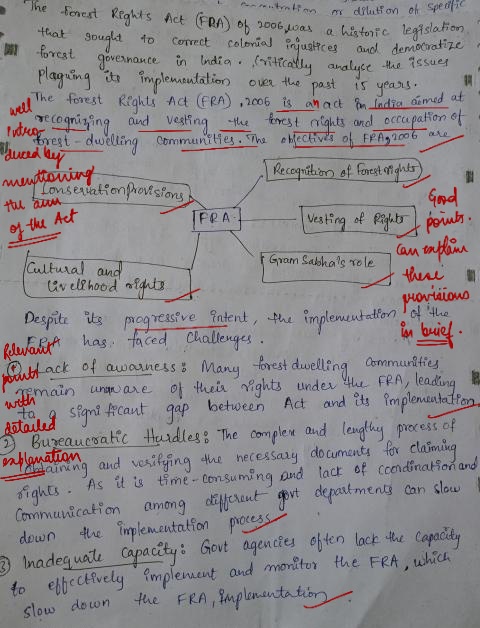 concentration or dilution of specific
The Forest Rights Act (FRA) of 2006, was a historic legislation
that sought to correct colonial injustices and democratize
forest governance in India. Critically analyse the issues
plaguing its implementation over the past 15 years.
The Forest Rights Act (FRA), 2006 is an act in India aimed at
recognizing and vesting the forest rights and occupation of
forest-dwelling communities. The objectives of FRA, 2006 are
well
intro
duced by
mentioning
the aim
of the Act
Conservation provisions
Recognition of Forest rights
FRA
Vesting of Rights
Cultural and
livelihood rights
Gram Sabha's role
Good
points.
can explain
these
provisions
in brief.
Despite its progressive intent, the implementation of the
FRA has faced challenges.
Relevant
point
with
detailed
explanation
① Lack of awarness: Many forest dwelling communities
remain unaware of their rights under the FRA, leading
to a significant gap between Act and its implementation
② Bureaucratic Hurdles: The complex and lengthy process of
obtaining and verifying the necessary documents for claiming
rights. As it is time-consuming and lack of coordination and
communication among different govt departments can slow
down the implementation process
③ Inadequate capacity: Govt agencies often lack the capacity
to effectively implement and monitor the FRA, which
slow down the FRA, implementation